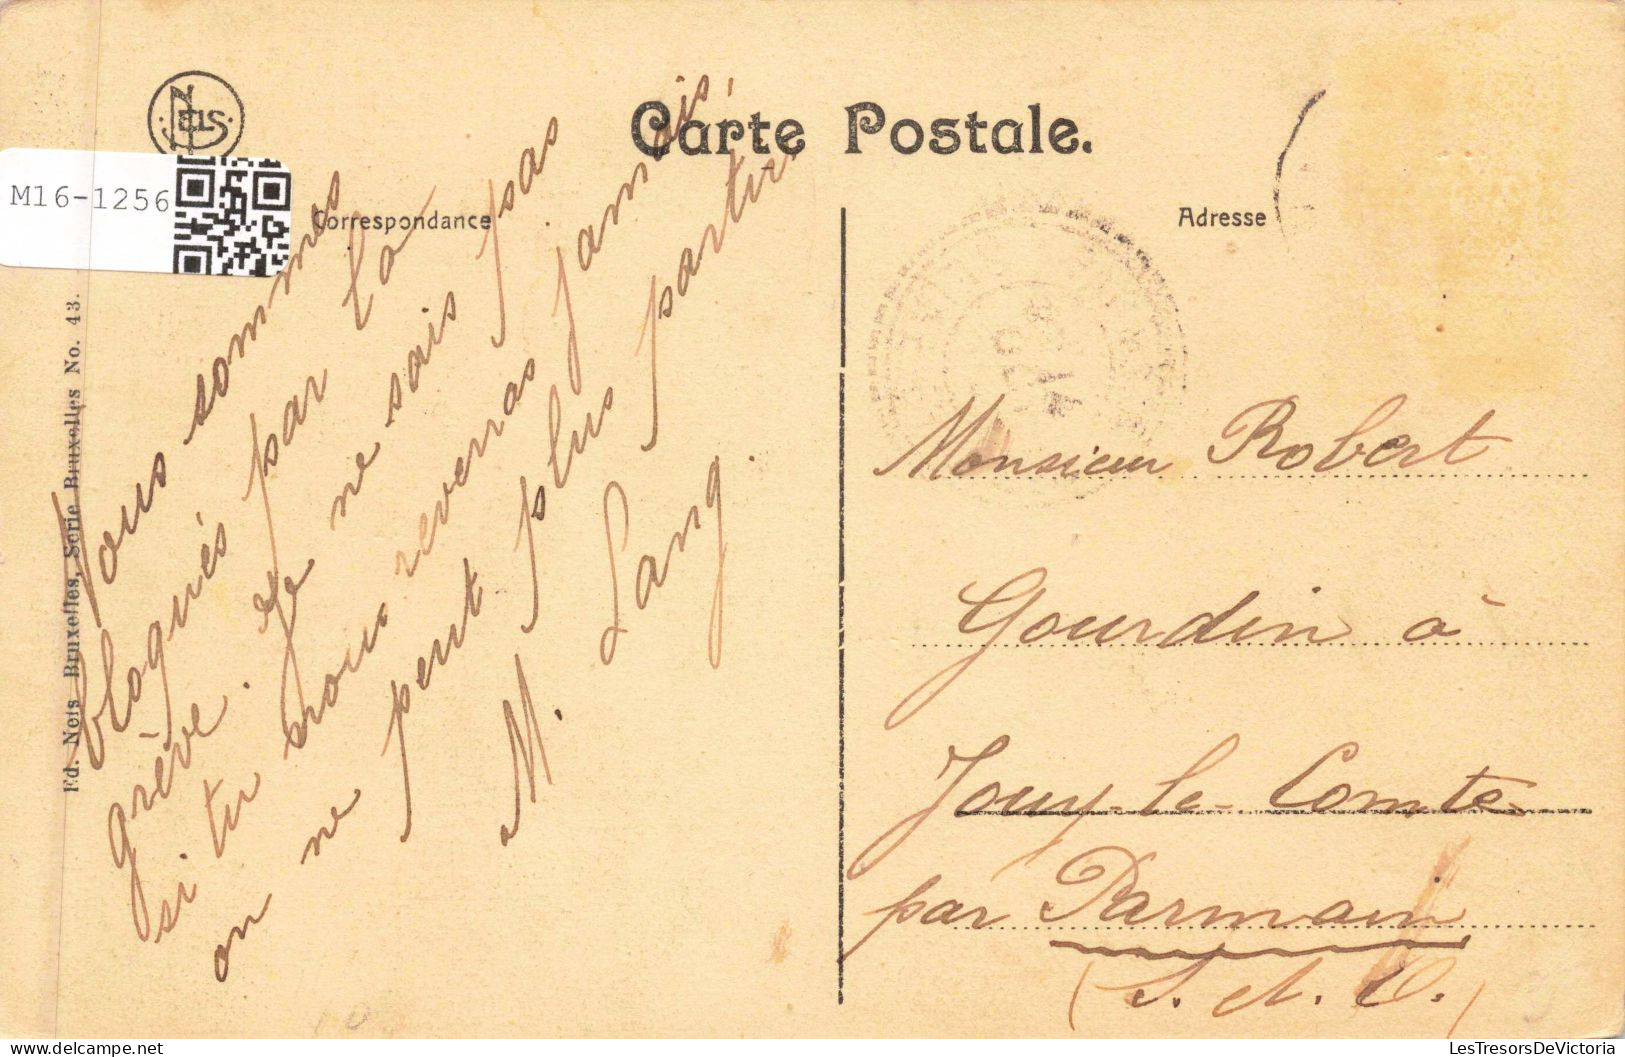 NELS
Carte Postale.
M16-1256
Correspondance
Adresse
Ed. Nels Bruxelles, Serie Bruxelles No. 43.
Nous sommes
bloqués par la
grève. Je ne sais pas
si tu nous reverras jamais,
on ne peut plus partir
M. Lang.
Monsieur Robert
Gourdin à
Jouy-le-Comte
par Parmain
(S. et. O.)
LesTresorsDeVictoria